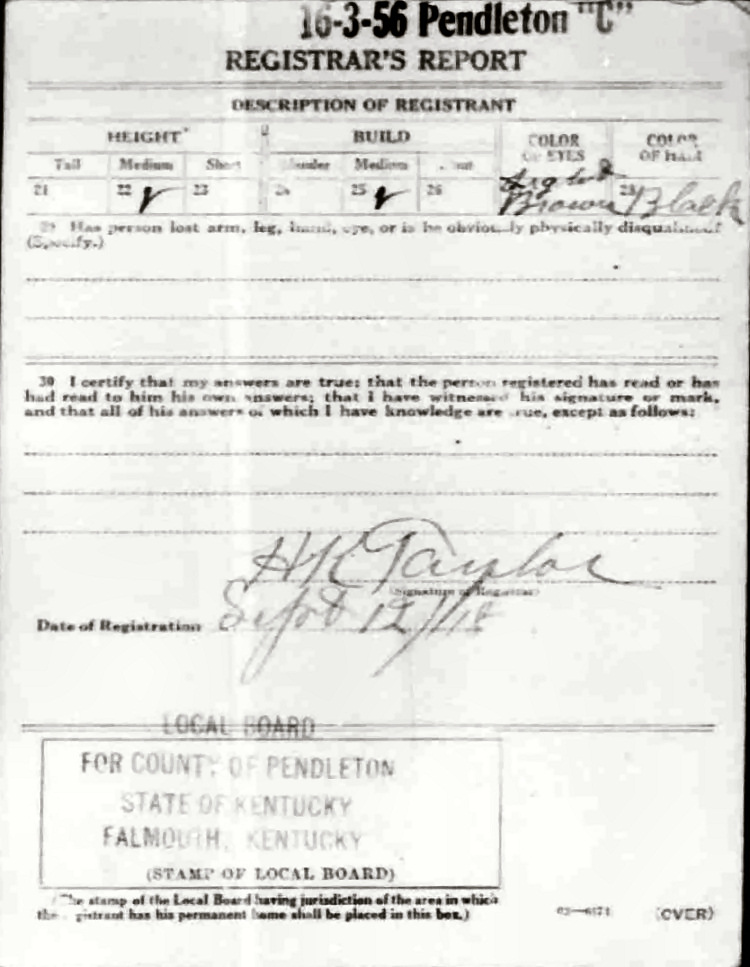 16-3-56 Pendleton "C"
REGISTRAR'S REPORT
DESCRIPTION OF REGISTRANT
HEIGHT BUILD COLOR OF EYES COLOR OF HAIR
Tall Medium Short Slender Medium Stout
21 22 ✓ 23 24 25 ✓ 26 Light Brown 28 Black
29 Has person lost arm, leg, hand, eye, or is he obviously physically disqualified?
(Specify.)
30 I certify that my answers are true; that the person registered has read or has
had read to him his own answers; that I have witnessed his signature or mark,
and that all of his answers of which I have knowledge are true, except as follows:
H K Taylor
(Signature of Registrar)
Date of Registration Sept 12/18
LOCAL BOARD
FOR COUNTY OF PENDLETON
STATE OF KENTUCKY
FALMOUTH, KENTUCKY
(STAMP OF LOCAL BOARD)
(The stamp of the Local Board having jurisdiction of the area in which
the registrant has his permanent home shall be placed in this box.)
03—6171 (OVER)